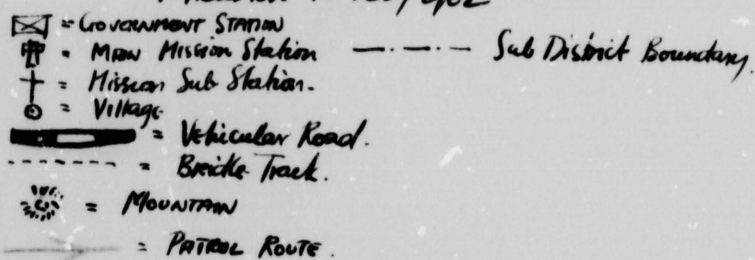 = GOVERNMENT STATION
= MAIN MISSION Station
Sub District Boundary.
= Mission Sub Station.
= Village
= Vehicular Road.
= Breidle Track.
= MOUNTAIN
= PATROL ROUTE.